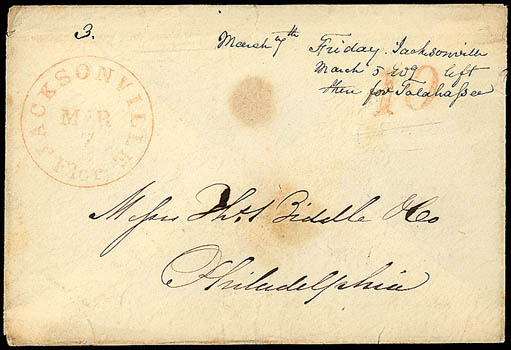 3.
March 7th Friday. Jacksonville
March 5 left
then for Talahassee
10
JACKSONVILLE
MAR
7
Flor.
Messrs Thos Biddle & Co
Philadelphia